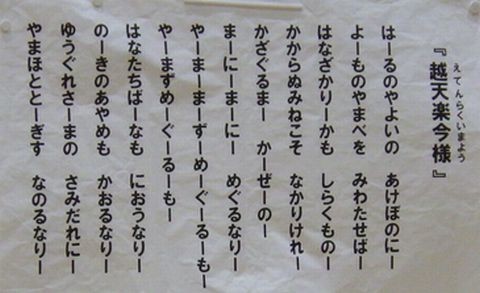 『越天楽今様』
えてんらくいまよう
はーるのやよいの　あけぼのにー
よーものやまべを　みわたせばー
はなざかりーかも　しらくものー
かからぬみねこそ　なかりけれー
かざぐるまー　かーぜーのー
まーにーまーにー　めぐるなりー
やーまーまーずーめーぐーるーもー
やーまずめーぐーるーもー
はなたちばーなも　におうなりー
のーきのあやめも　かおるなりー
ゆうぐれさーまの　さみだれにー
やまほととーぎす　なのるなりー